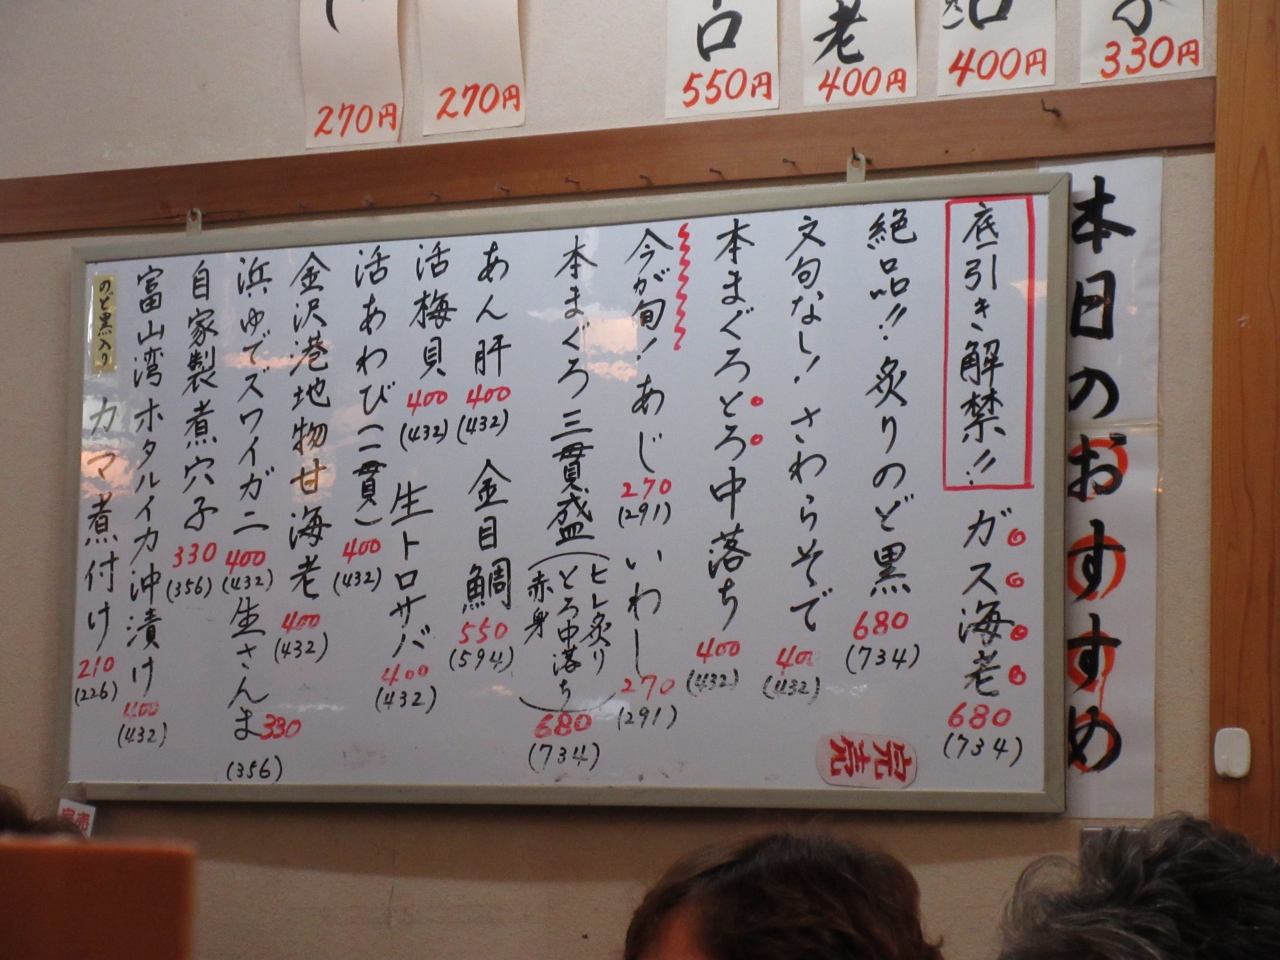 270円
270円
550円
老
400円
400円
330円
本日のおすすめ
底引き解禁!! ガス海老 680 (734)
絶品!! 炙りのど黒 680 (734)
文句なし! さわらそで 400 (432)
本まぐろとろ中落ち 400 (432)
今が旬! あじ 270 (291) いわし 270 (291)
本まぐろ三貫盛 (ヒレ炙り とろ中落ち 赤身) 680 (734)
あん肝 400 (432) 金目鯛 550 (594)
活梅貝 400 (432) 生トロサバ 400 (432)
活あわび(一貫) 400 (432)
金沢港地物甘海老 400 (432)
浜ゆでズワイガニ 400 (432) 生さんま 330 (356)
自家製煮穴子 330 (356)
富山湾ホタルイカ沖漬け 400 (432)
のど黒入り カマ煮付け 210 (226)
完売
完売